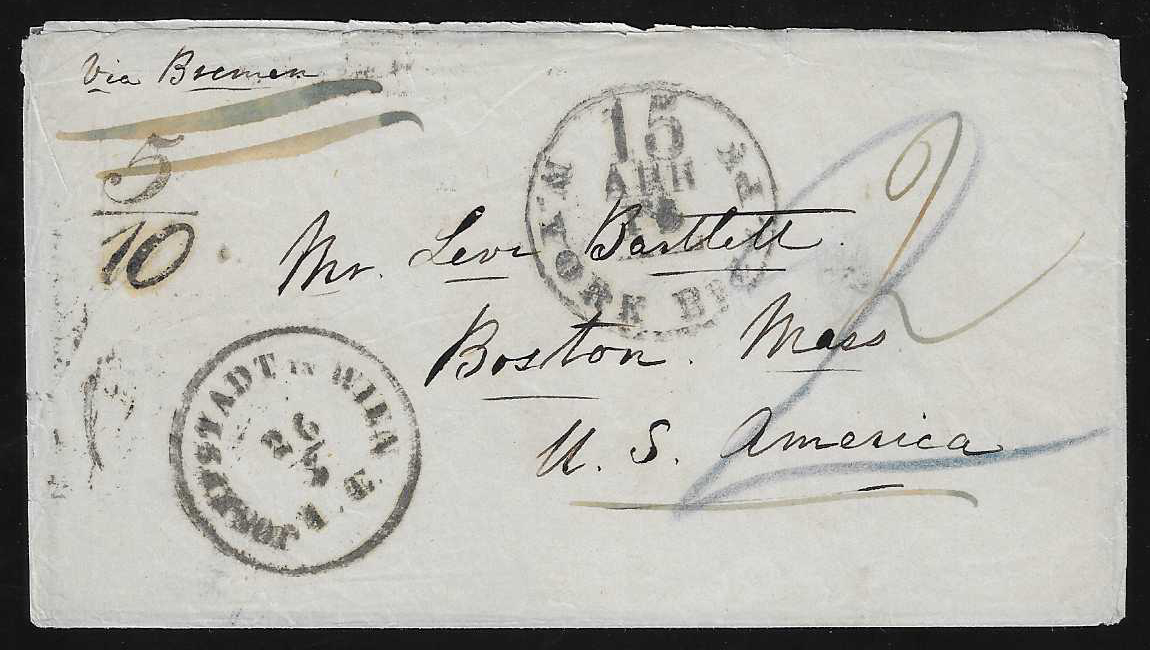 Via Bremen
5
10
Mr. Levi Bartlett
Boston. Mass
U. S. America
15
N. YORK BR. PK
JOSEFSTADT IN WIEN
26
2